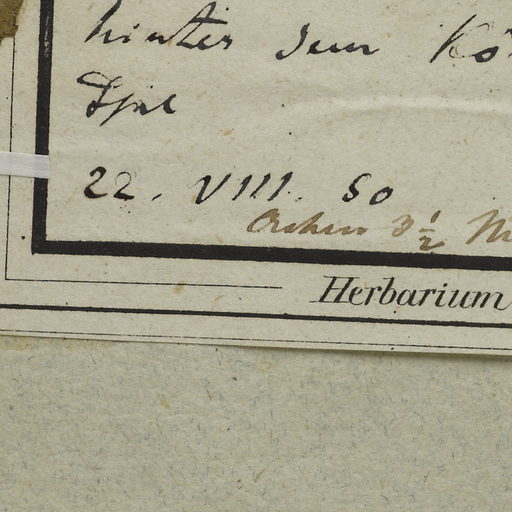 hinter dem Kö
22. VIII. 50
3 1/2 M
Herbarium